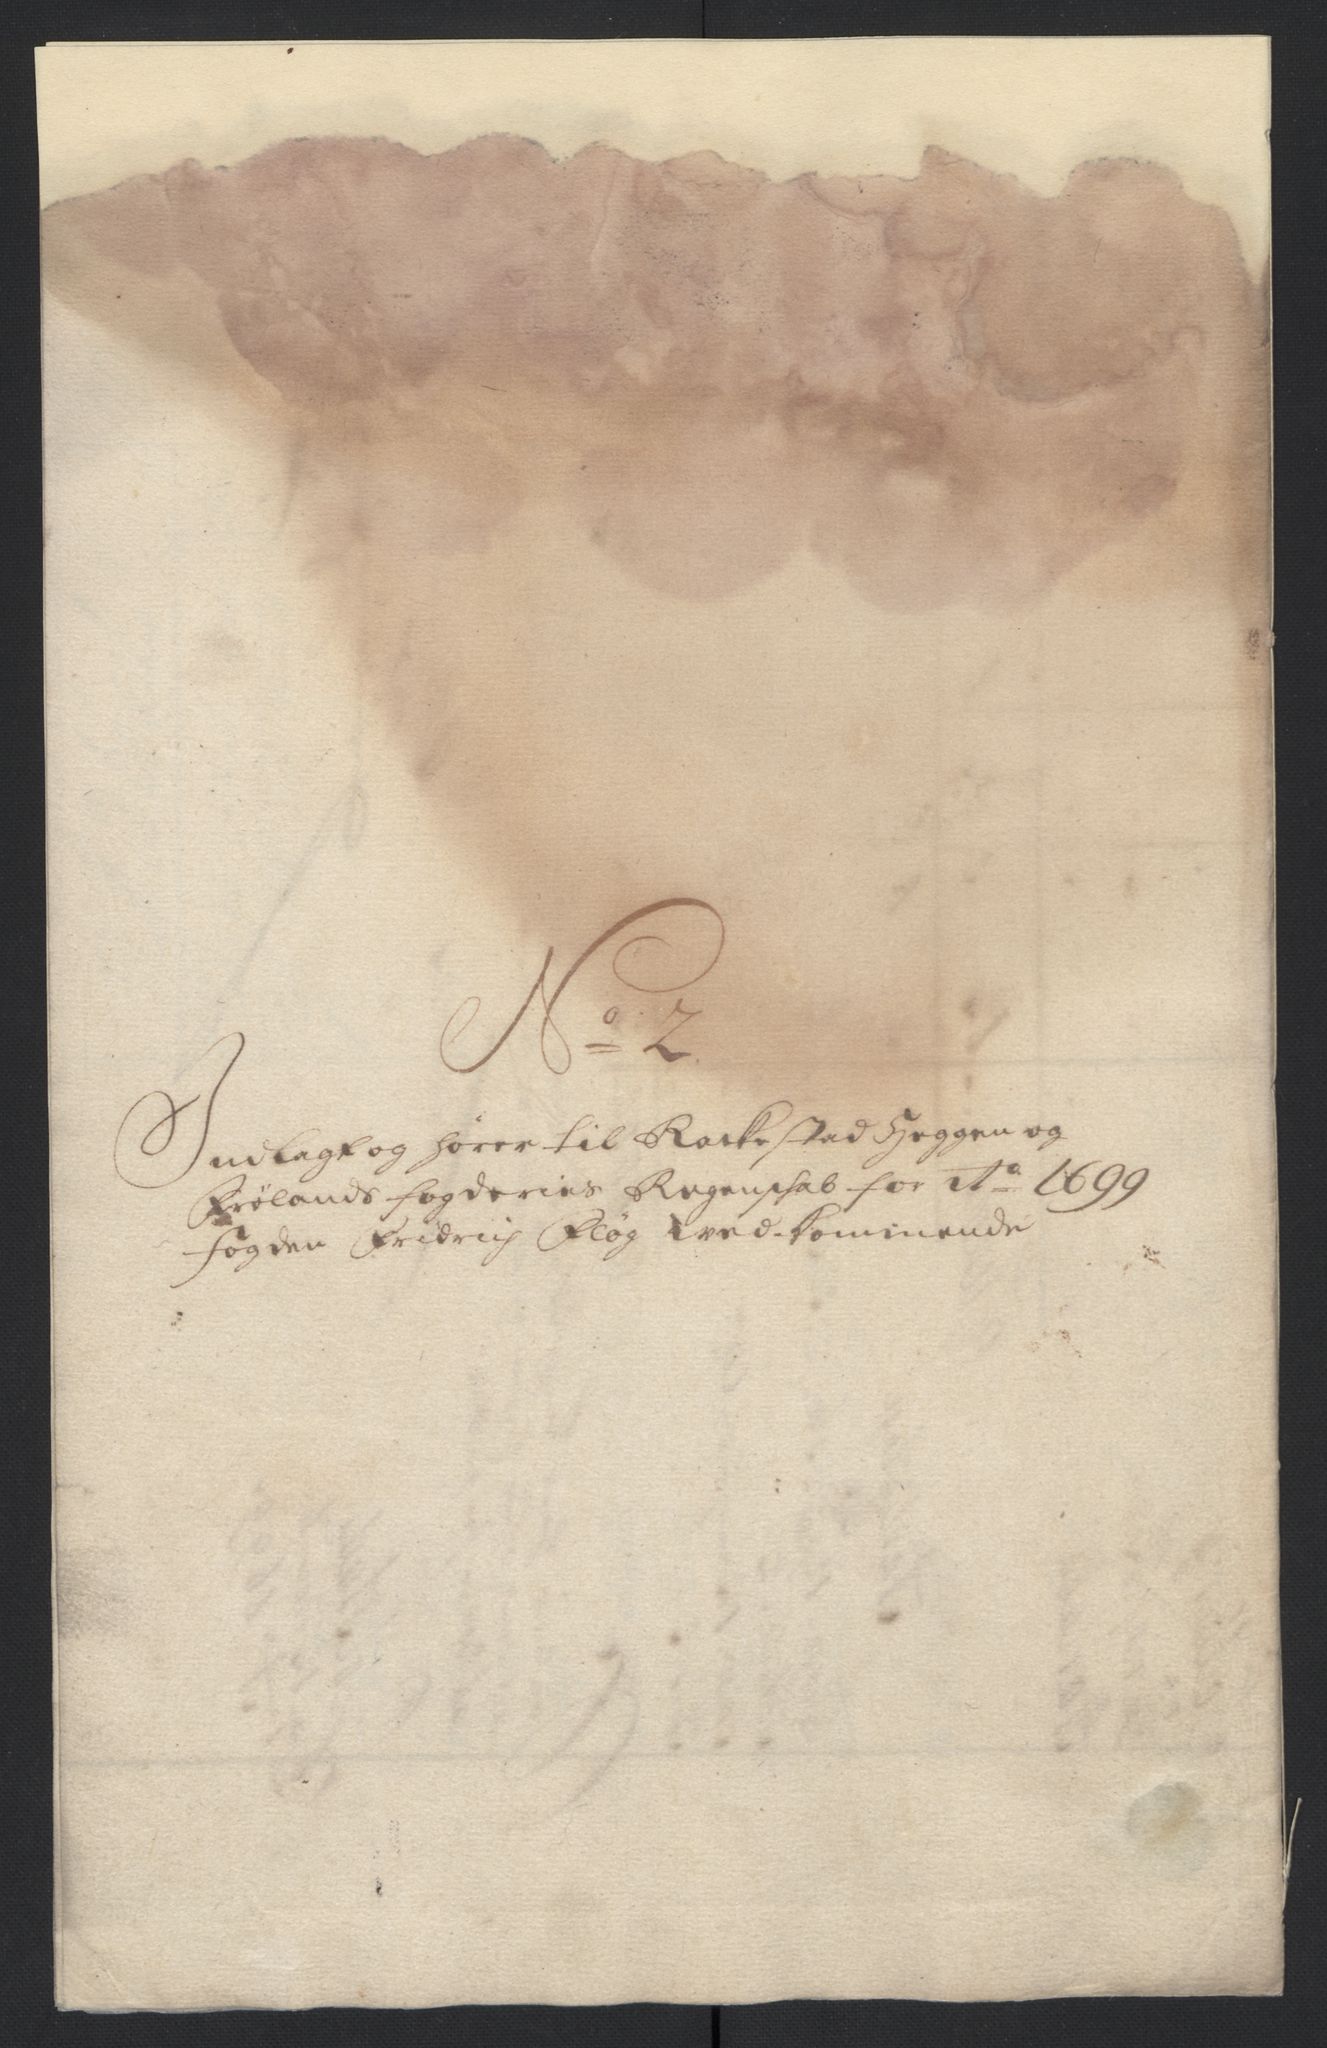 No 2
Indlagt og hører til Rackestad Heggen og
Frølands fogderies Regenschab for Ao 1699
fogden Fridrich Pløg vedkommende